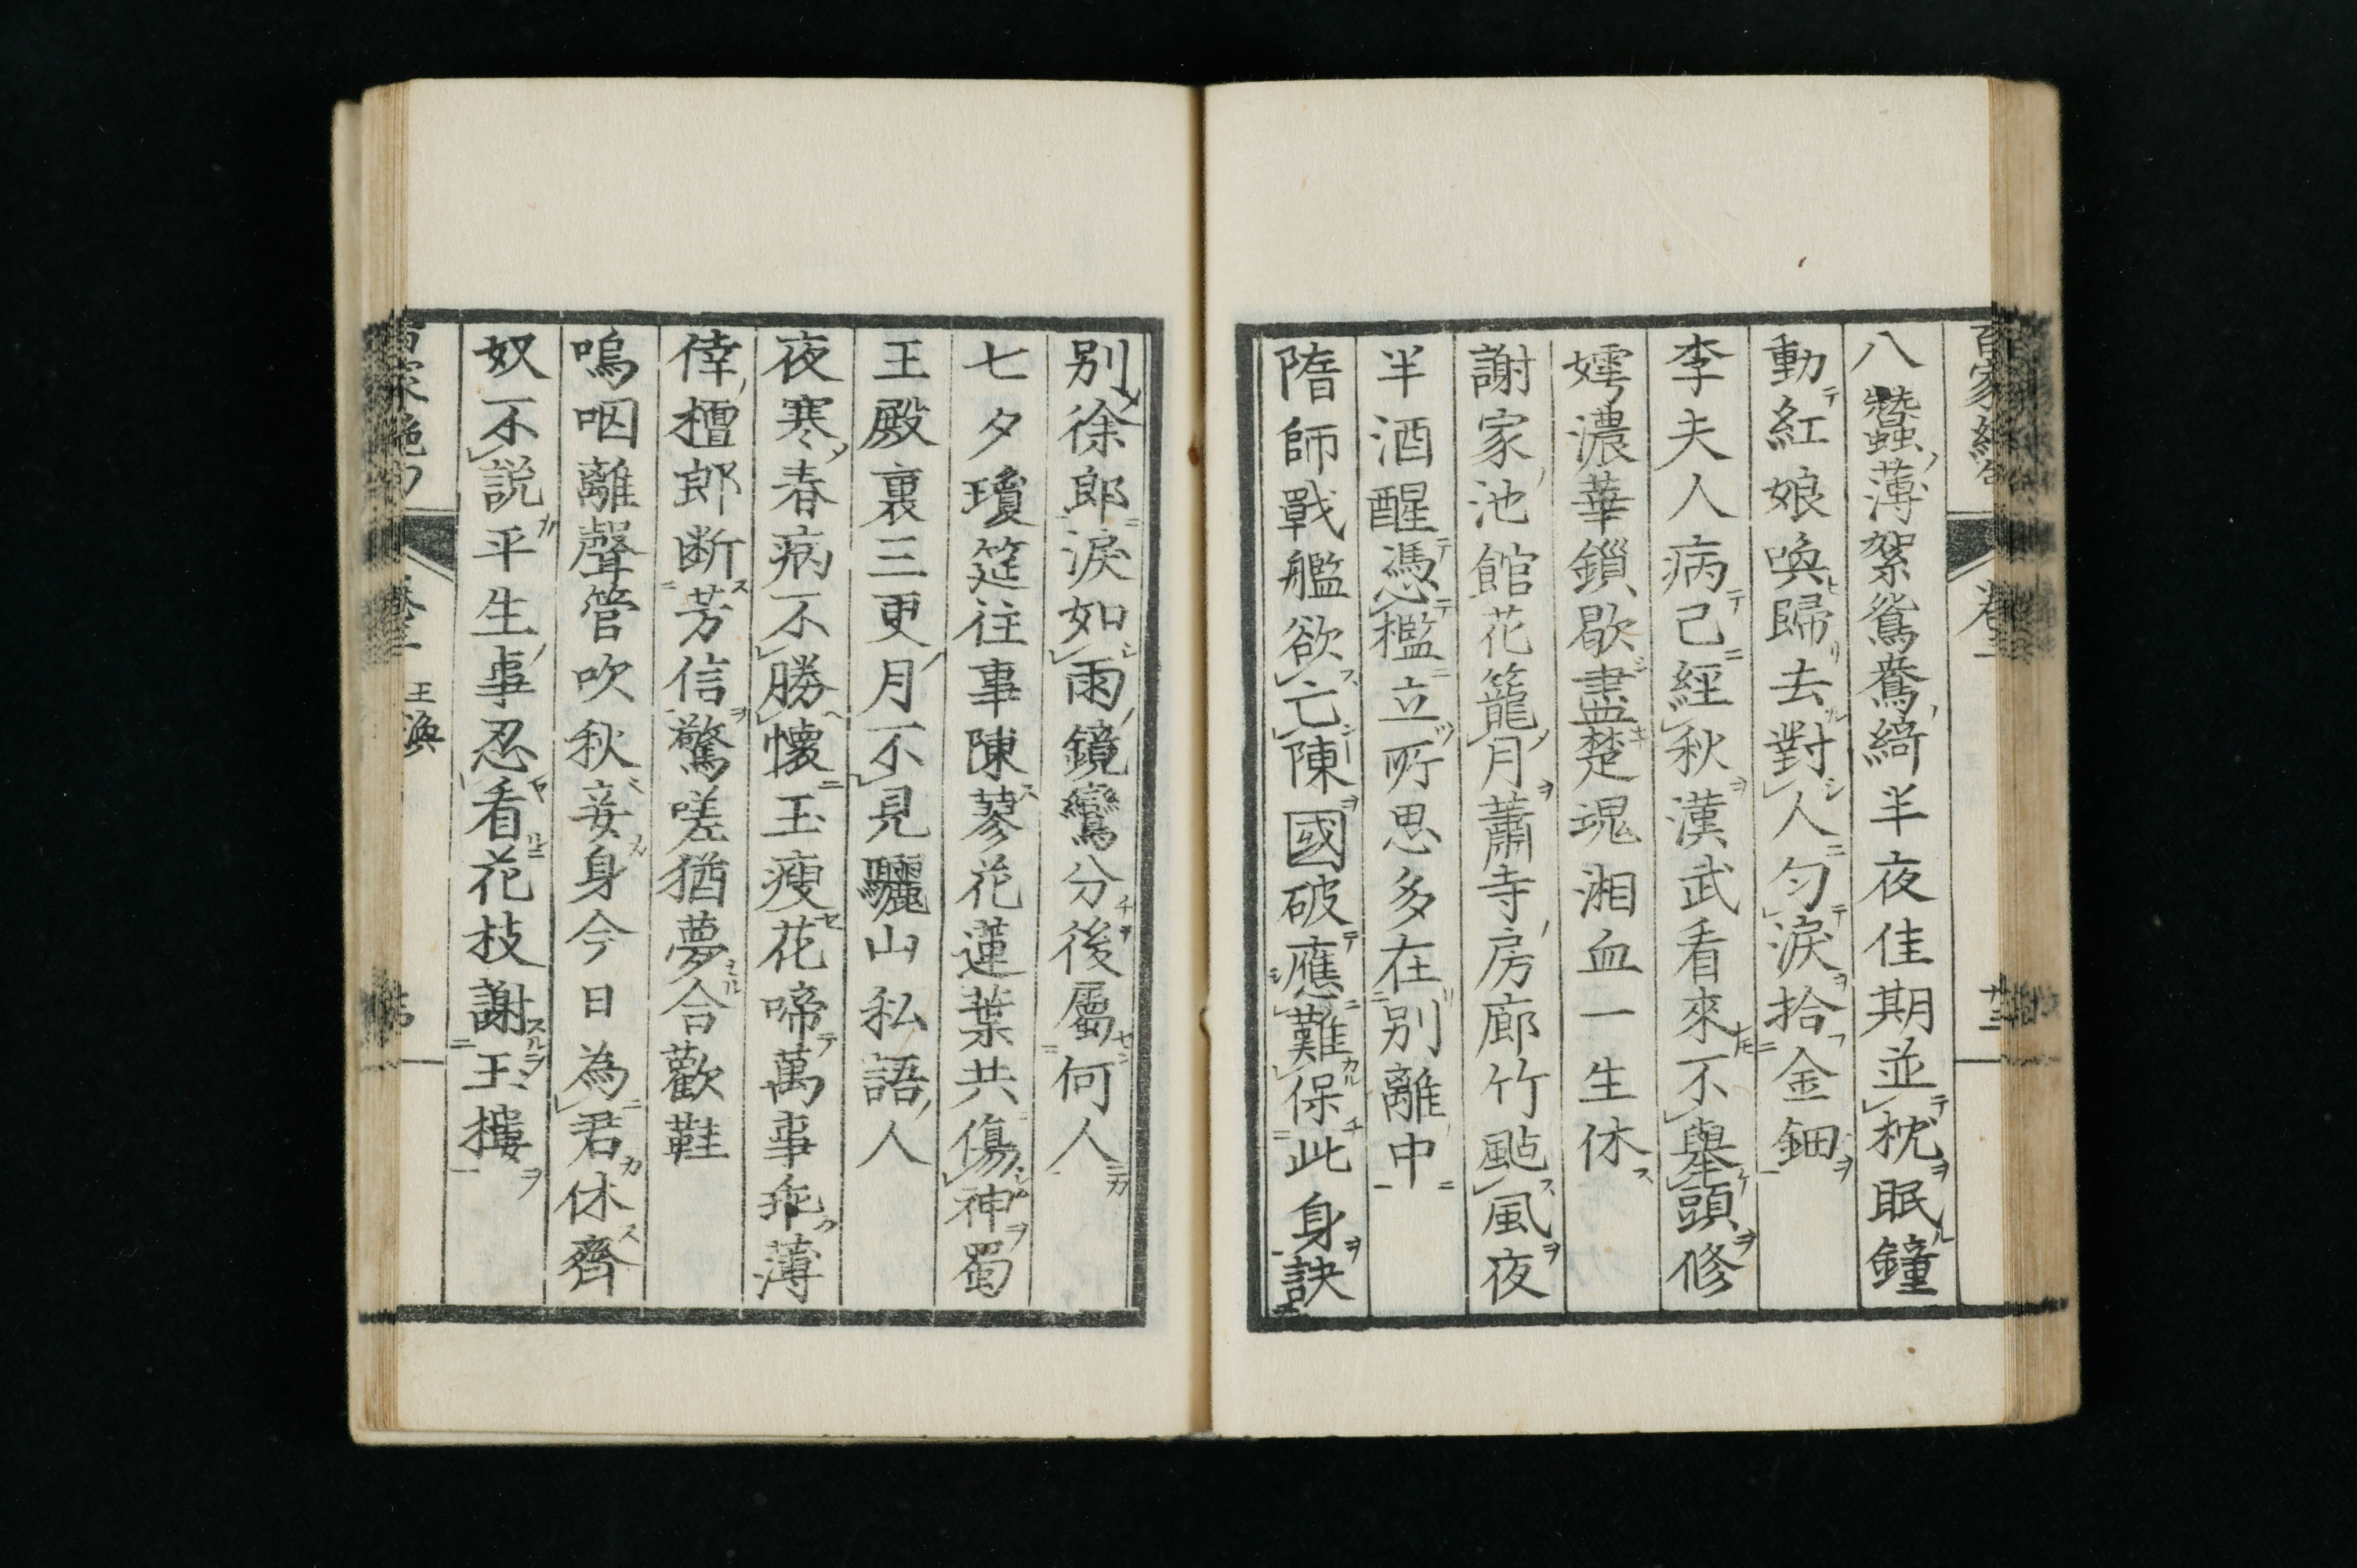 八蠶薄絮鴛鴦綺半夜佳期並枕眠鐘
動紅娘喚歸去對人匀淚拾金鈿
李夫人病已經秋漢武看來不舉頭修
嫮濃華銷歇盡楚魂湘血一生休
謝家池館花籠月蕭寺房廊竹颭風夜
半酒醒憑檻立所思多在别離中
隋師戰艦欲亡陳國破應難保此身訣
别徐郎淚如雨鏡鸞分後屬何人
七夕瓊筵往事陳蓼花蓮葉共傷神蜀
王殿裏三更月不見驪山私語人
夜寒春病不勝懷玉瘦花啼萬事乖薄
倖檀郎断芳信驚嗟猶夢合歡鞋
嗚咽離聲管吹秋妾身今日為君休齊
奴不説平生事忍看花枝謝玉樓
王渙